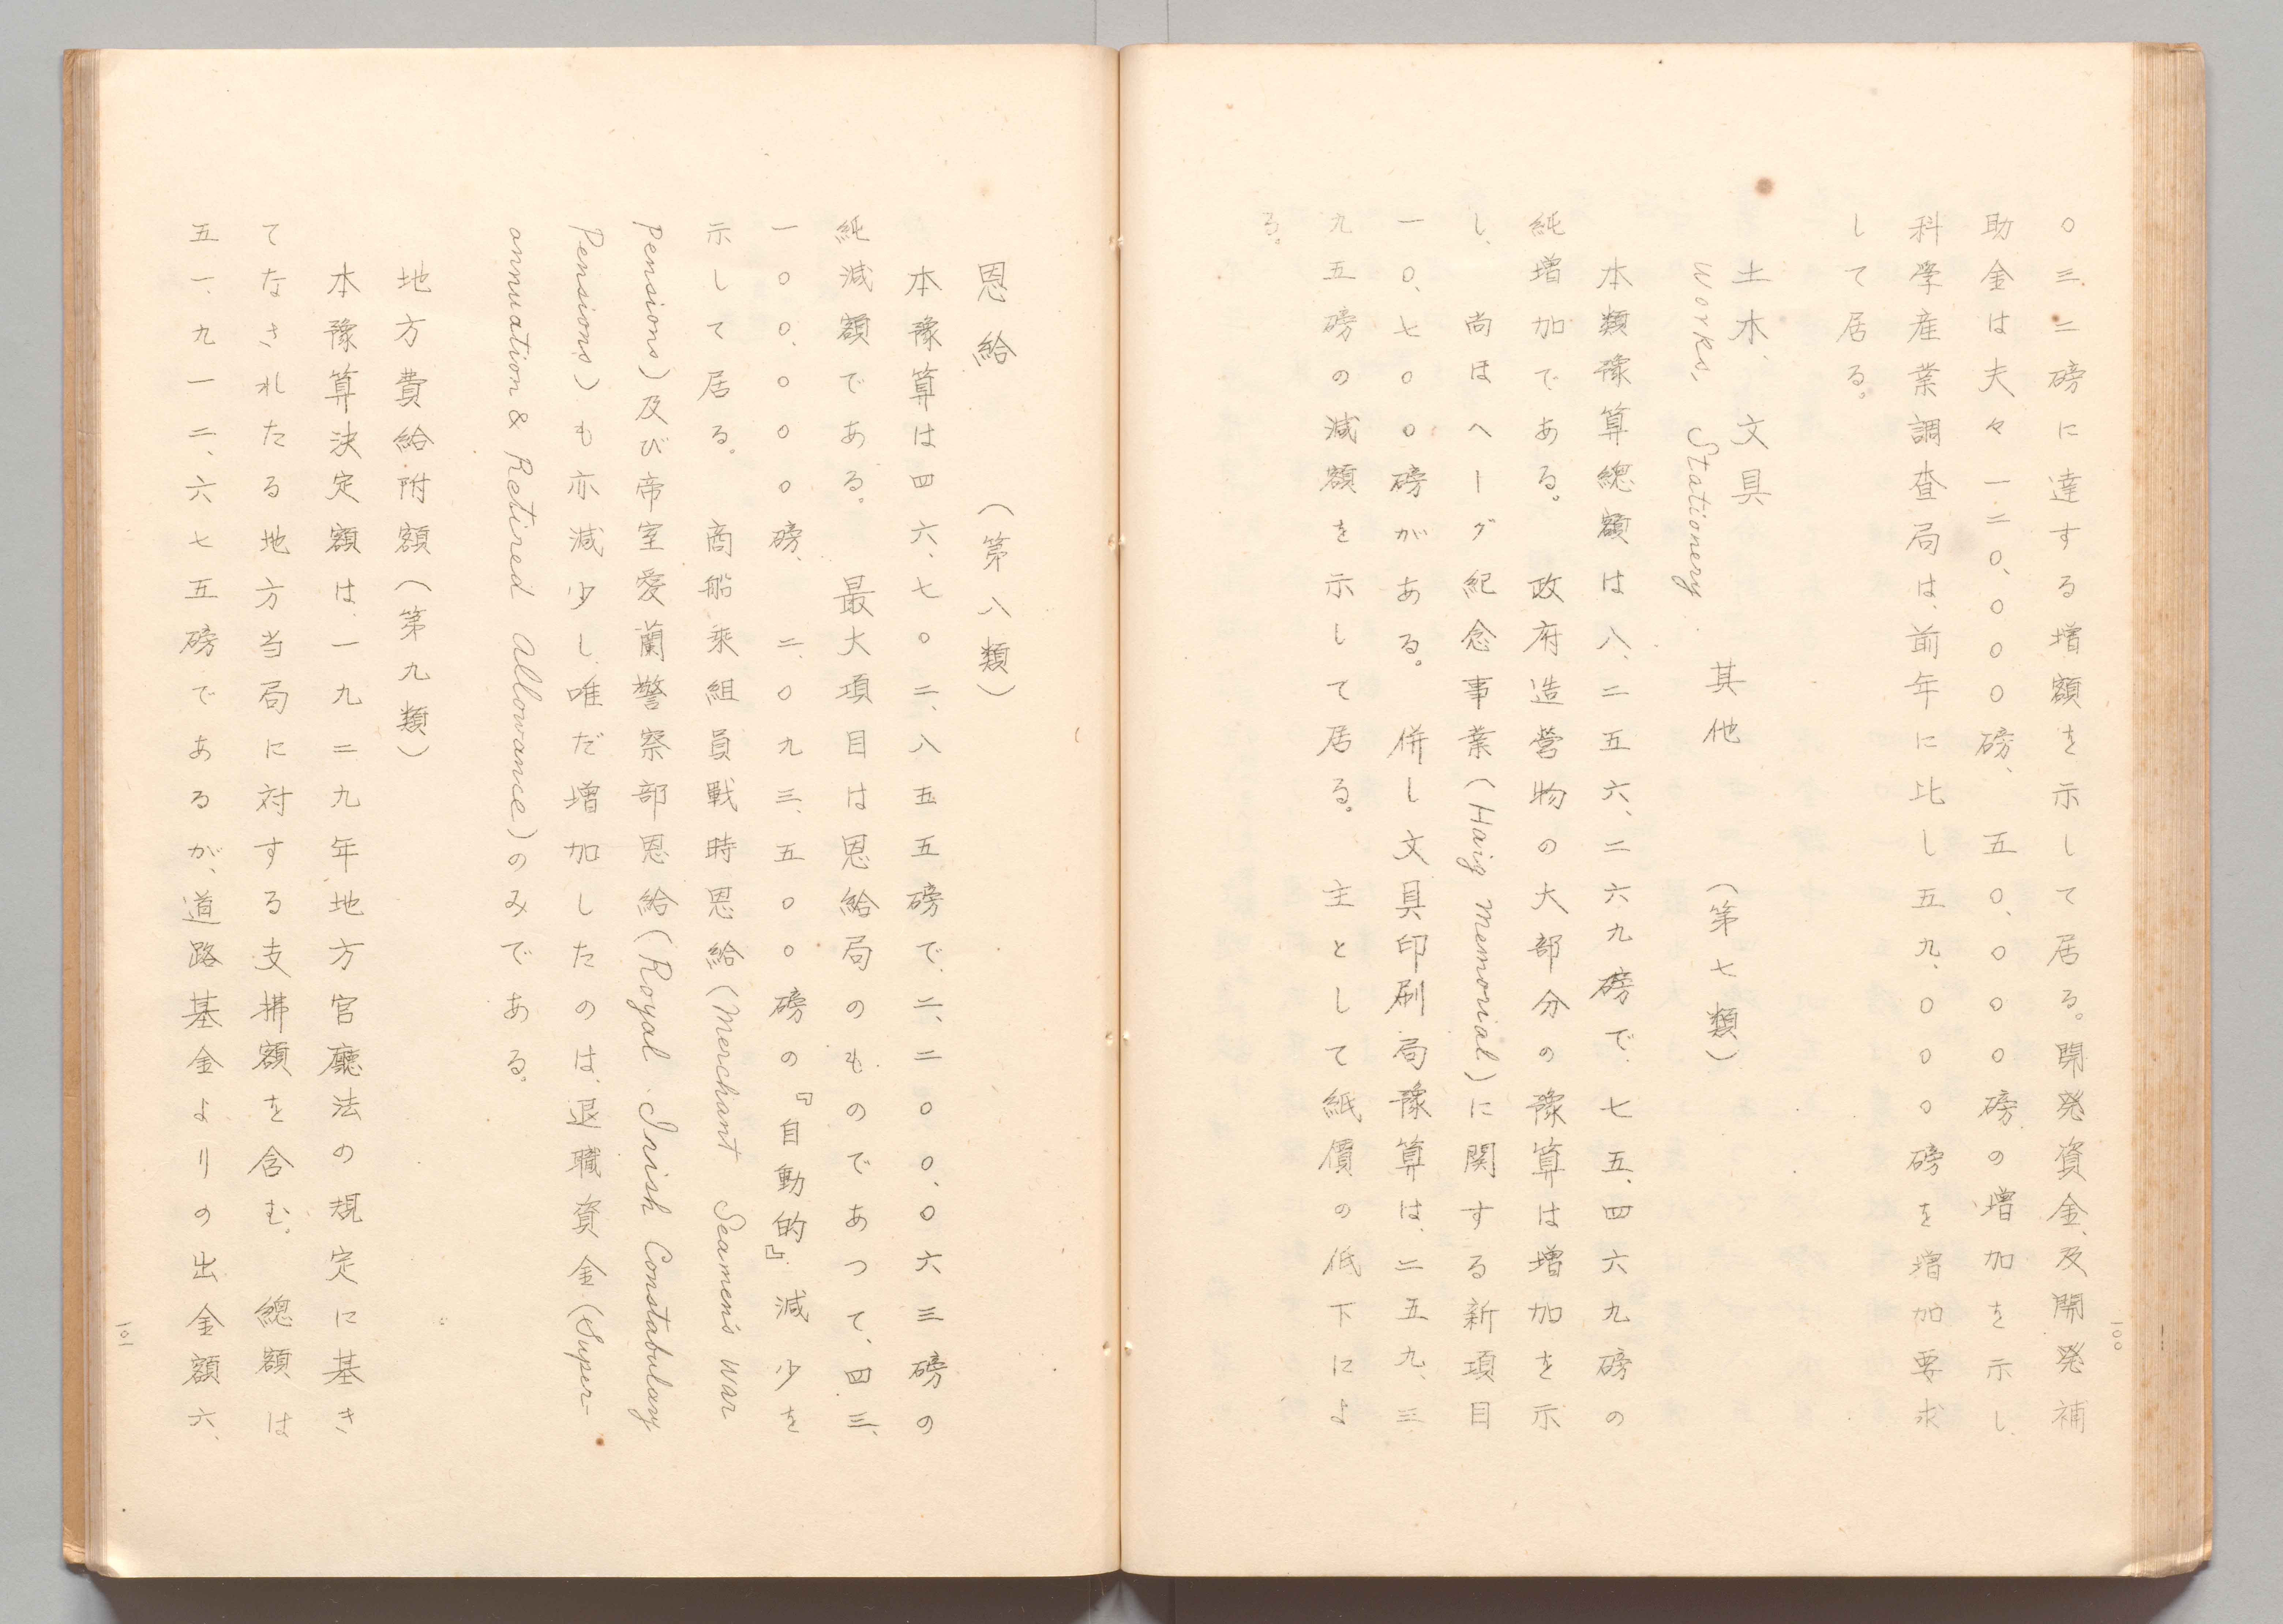 〇三二磅に達する増額を示して居る。開発資金、及開発補
助金は夫々一二〇、〇〇〇磅、五〇、〇〇〇磅の増加を示し、
科学産業調査局は、前年に比し五九、〇〇〇磅を増加要求
して居る。
土木、文具 其他 (第七類)
Works, Stationery
本類豫算總額は八、二五六、二六九磅で、七五、四六九磅の
純増加である。 政府造営物の大部分の豫算は増加を示
し、尚ほヘーグ紀念事業(Haig Memorial)に関する新項目
一〇、七〇〇磅がある。 併し文具印刷局豫算は、二五九、三
九五磅の減額を示して居る。 主として紙價の低下によ
る。
一〇〇
恩給 (第八類)
本豫算は四六、七〇二、八五五磅で、二、二〇〇、〇六三磅の
純減額である。 最大項目は恩給局のものであつて、四三、
一〇〇、〇〇〇磅、二、〇九三、五〇〇磅の『自動的』減少を
示して居る。 商船乘組員戰時恩給(Merchant Seamen's War
Pensions)及び帝室愛蘭警察部恩給(Royal Irish Constabulary
Pensions)も亦減少し、唯だ増加したのは、退職資金(Super-
annuation & Retired Allowance)のみである。
地方費給附額(第九類)
本豫算決定額は、一九二九年地方官廳法の規定に基き
てなされたる地方当局に対する支拂額を含む。 總額は
五一、九一二、六七五磅であるが、道路基金よりの出金額六、
一〇一